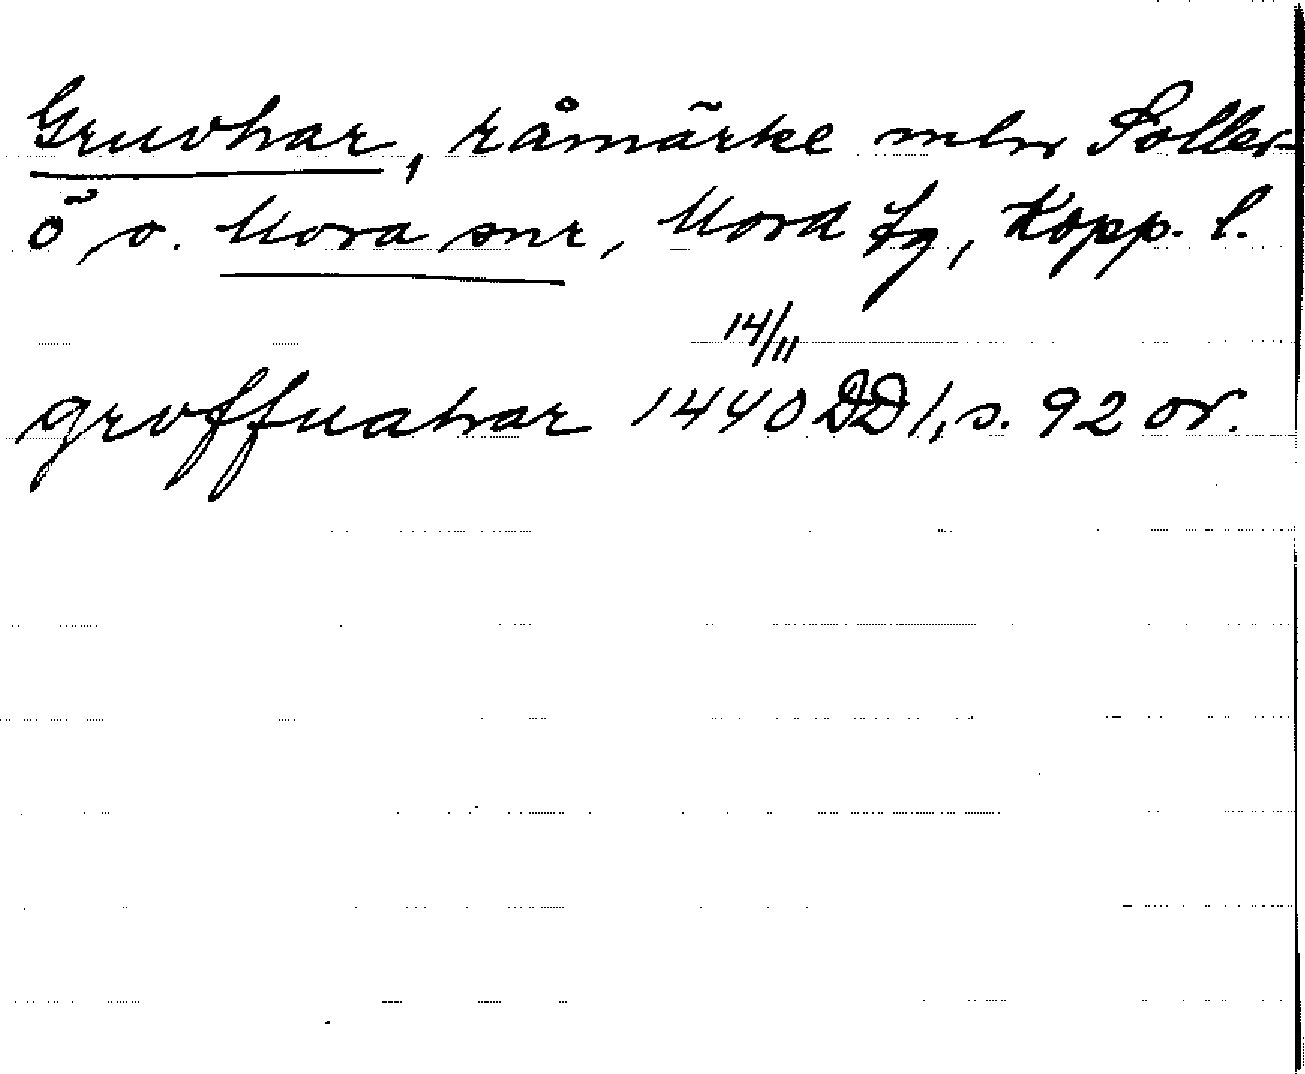 Gruvhar, råmärke mlm Soller-
ö o. Mora snr, Mora fg, Kopp. l.
14/11
groffuahar 1440 DD 1, s. 92 or.